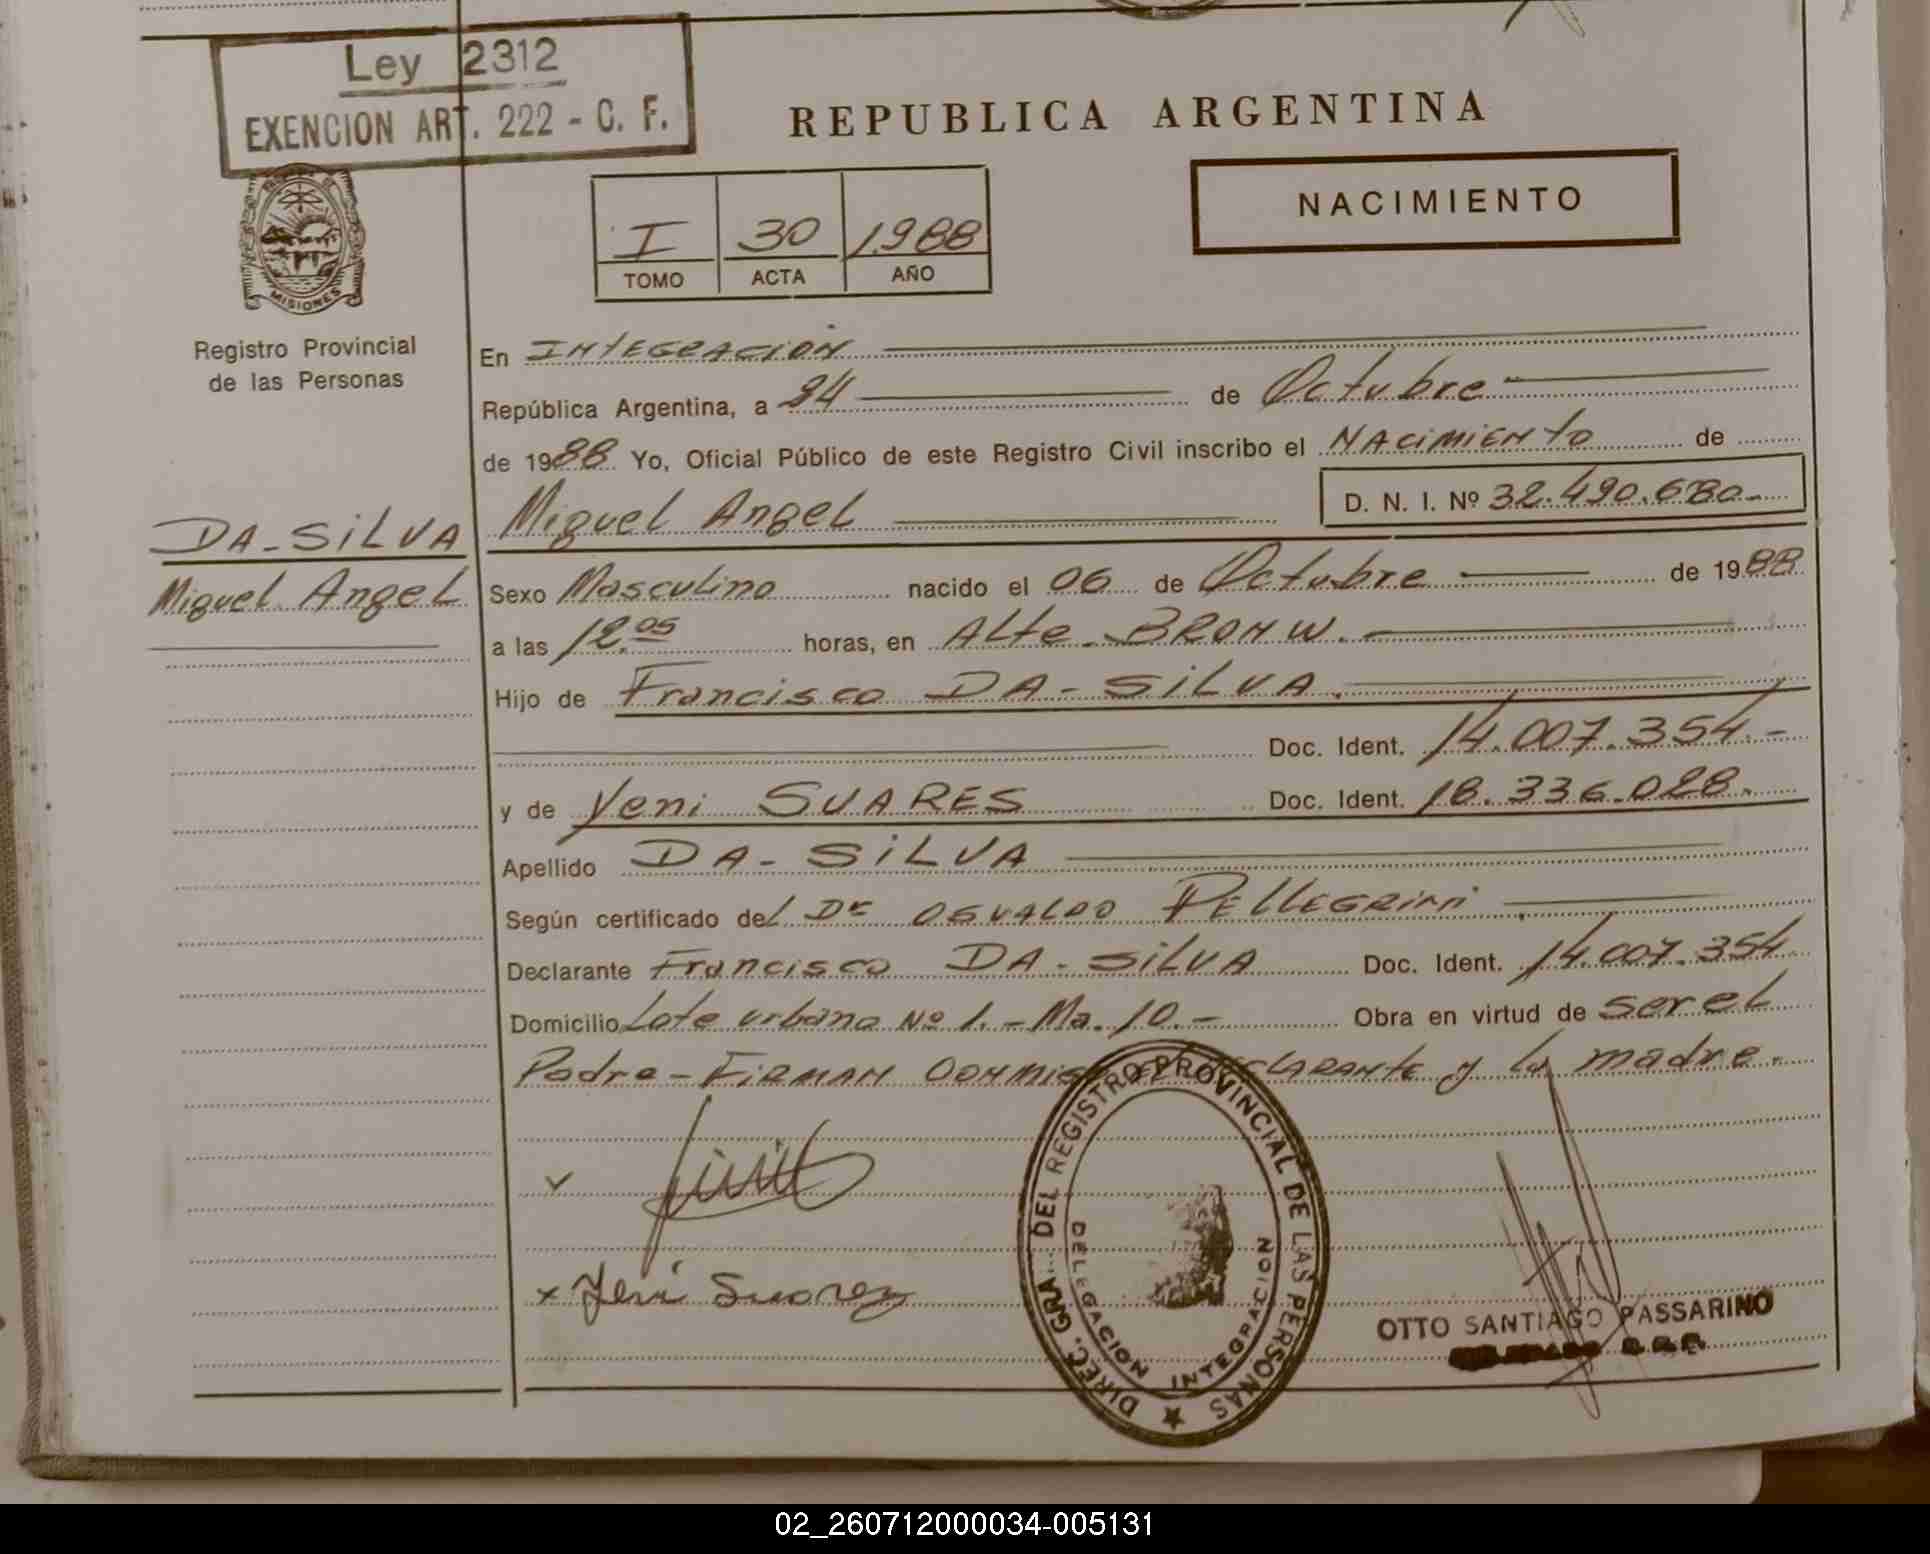 Ley 2312
EXENCION ART. 222 - C. F.
REPUBLICA ARGENTINA
NACIMIENTO
I 30 1.988
TOMO ACTA AÑO
MISIONES
Registro Provincial
de las Personas
En INTEGRACIÓN
República Argentina, a 24 de Octubre
de 1988 Yo, Oficial Público de este Registro Civil inscribo el NACIMIENTO de
Miguel Angel D. N. I. Nº 32.490.680.-
DA-SILVA
Miguel Angel
Sexo Masculino nacido el 06 de Octubre de 1988
a las 12.05 horas, en Alte. BROHW.
Hijo de Francisco DA-SILVA.
Doc. Ident. 14.007.354.-
y de Yeni SUARES Doc. Ident. 18.336.028.
Apellido DA-SILVA
Según certificado del Dr OSVALDO PELLEGRINI
Declarante Francisco DA-SILVA Doc. Ident. 14.007.354
Domicilio Lote urbano Nº 1.-Ma. 10.- Obra en virtud de ser el
Padre-FIRMAN y la madre.
Yeni Suarez
DIREC. GRA. DEL REGISTRO PROVINCIAL DE LAS PERSONAS
DELEGACION INTEGRACION
OTTO SANTIAGO PASSARINO
02_260712000034-005131